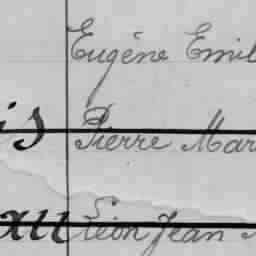 Eugène Emil
is Pierre Mar
au Léon Jean